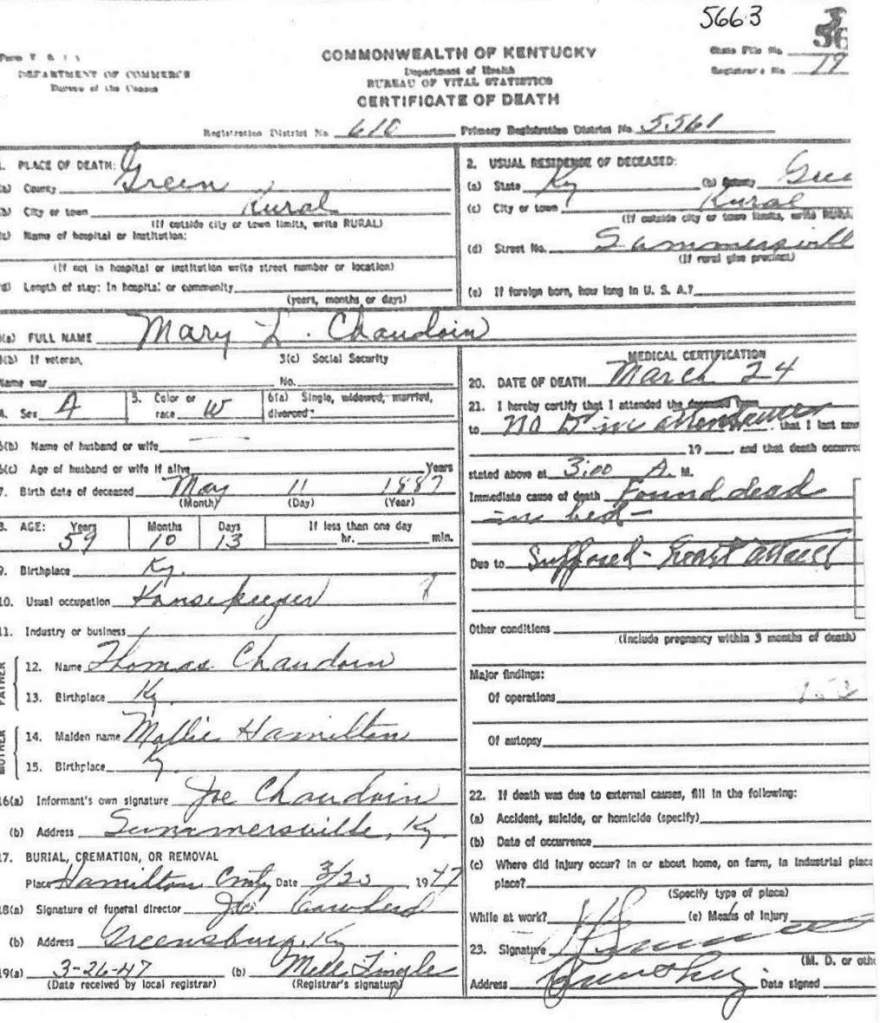 5663
Form V. S. 1 A
DEPARTMENT OF COMMERCE
Bureau of the Census
COMMONWEALTH OF KENTUCKY
Department of Health
BUREAU OF VITAL STATISTICS
CERTIFICATE OF DEATH
State File No.
Registrar's No. 19
Registration District No. 610 Primary Registration District No. 5561
1. PLACE OF DEATH:
(a) County Green
(b) City or town Rural
(If outside city or town limits, write RURAL)
(c) Name of hospital or institution:
(If not in hospital or institution write street number or location)
(d) Length of stay: In hospital or community
(years, months or days)
2. USUAL RESIDENCE OF DECEASED:
(a) State Ky (b) County Gree
(c) City or town Rural
(If outside city or town limits, write RURAL
(d) Street No. Summersvill
(If rural give precinct)
(e) If foreign born, how long in U. S. A.?
3(a) FULL NAME Mary L. Chaudoin
3(b) If veteran, 3(c) Social Security
Name war No.
4. Sex 5. Color or race W 6(a) Single, widowed, married, divorced:
6(b) Name of husband or wife
6(c) Age of husband or wife if alive Years
7. Birth date of deceased May 11 1887
(Month) (Day) (Year)
8. AGE: Years Months Days If less than one day
59 10 13 hr. min.
9. Birthplace Ky.
10. Usual occupation Housekeeper
11. Industry or business
FATHER
12. Name Thomas Chaudoin
13. Birthplace Ky
MOTHER
14. Maiden name Mollie Hamilton
15. Birthplace Ky
16(a) Informant's own signature Joe Chaudoin
(b) Address Summersville, Ky.
17. BURIAL, CREMATION, OR REMOVAL
Place Hamilton Date 3/25 1947
18(a) Signature of funeral director
(b) Address Greensburg, Ky
19(a) 3-26-47 (b)
(Date received by local registrar) (Registrar's signature)
MEDICAL CERTIFICATION
20. DATE OF DEATH March 24
21. I hereby certify that I attended the
to No Dr in attendance that I last saw
19 , and that death occurre
stated above at 3:00 A. M.
Immediate cause of death Found dead
in bed-
Due to heart attack
Other conditions
(Include pregnancy within 3 months of death)
Major findings:
Of operations
Of autopsy
22. If death was due to external causes, fill in the following:
(a) Accident, suicide, or homicide (specify)
(b) Date of occurrence
(c) Where did injury occur? In or about home, on farm, in industrial place
place?
(Specify type of place)
While at work? (e) Means of Injury
23. Signature
(M. D. or othe
Address Date signed